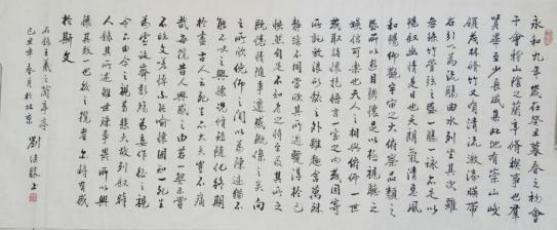 永和九年歲在癸丑暮春之初會
于會稽山陰之蘭亭修禊事也羣
賢畢至少長咸集此地有崇山峻
領茂林修竹又有清流激湍暎帶
左右引以為流觴曲水列坐其次雖
無絲竹管弦之盛一觴一詠亦足以
暢敘幽情是日也天朗氣清惠風
和暢仰觀宇宙之大俯察品類之
盛所以遊目騁懷足以極視聽之
娛信可樂也夫人之相與俯仰一世
或取諸懷抱悟言一室之內或因寄
所託放浪形骸之外雖趣舍萬殊
靜躁不同當其欣於所遇暫得於己
快然自足不知老之將至及其所之
既惓情隨事遷感慨係之矣向
之所欣俛仰之間以為陳迹猶不
能不以之興懷況脩短隨化終期
於盡古人云死生亦大矣豈不痛
哉每攬昔人興感之由若合一契未嘗
不臨文嗟悼不能喻之於懷固知一死生
為虛誕齊彭殤為妄作後之視
今亦由今之視昔悲夫故列敘時
人錄其所述雖世殊事異所以興
懷其致一也後之攬者亦將有感
於斯文
王羲之蘭亭序
己丑年春月於北京 劉